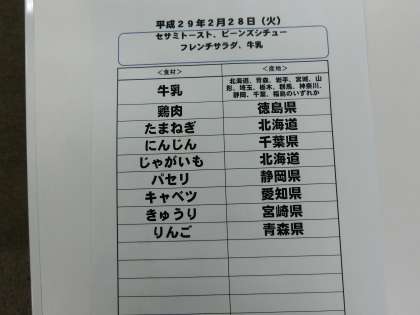 平成29年2月28日（火）
セサミトースト、ビーンズシチュー
フレンチサラダ、牛乳
＜食材＞ ＜産地＞
牛乳 北海道、青森、岩手、宮城、山
形、埼玉、栃木、群馬、神奈川、
静岡、千葉、福島のいずれか
鶏肉 徳島県
たまねぎ 北海道
にんじん 千葉県
じゃがいも 北海道
パセリ 静岡県
キャベツ 愛知県
きゅうり 宮崎県
りんご 青森県